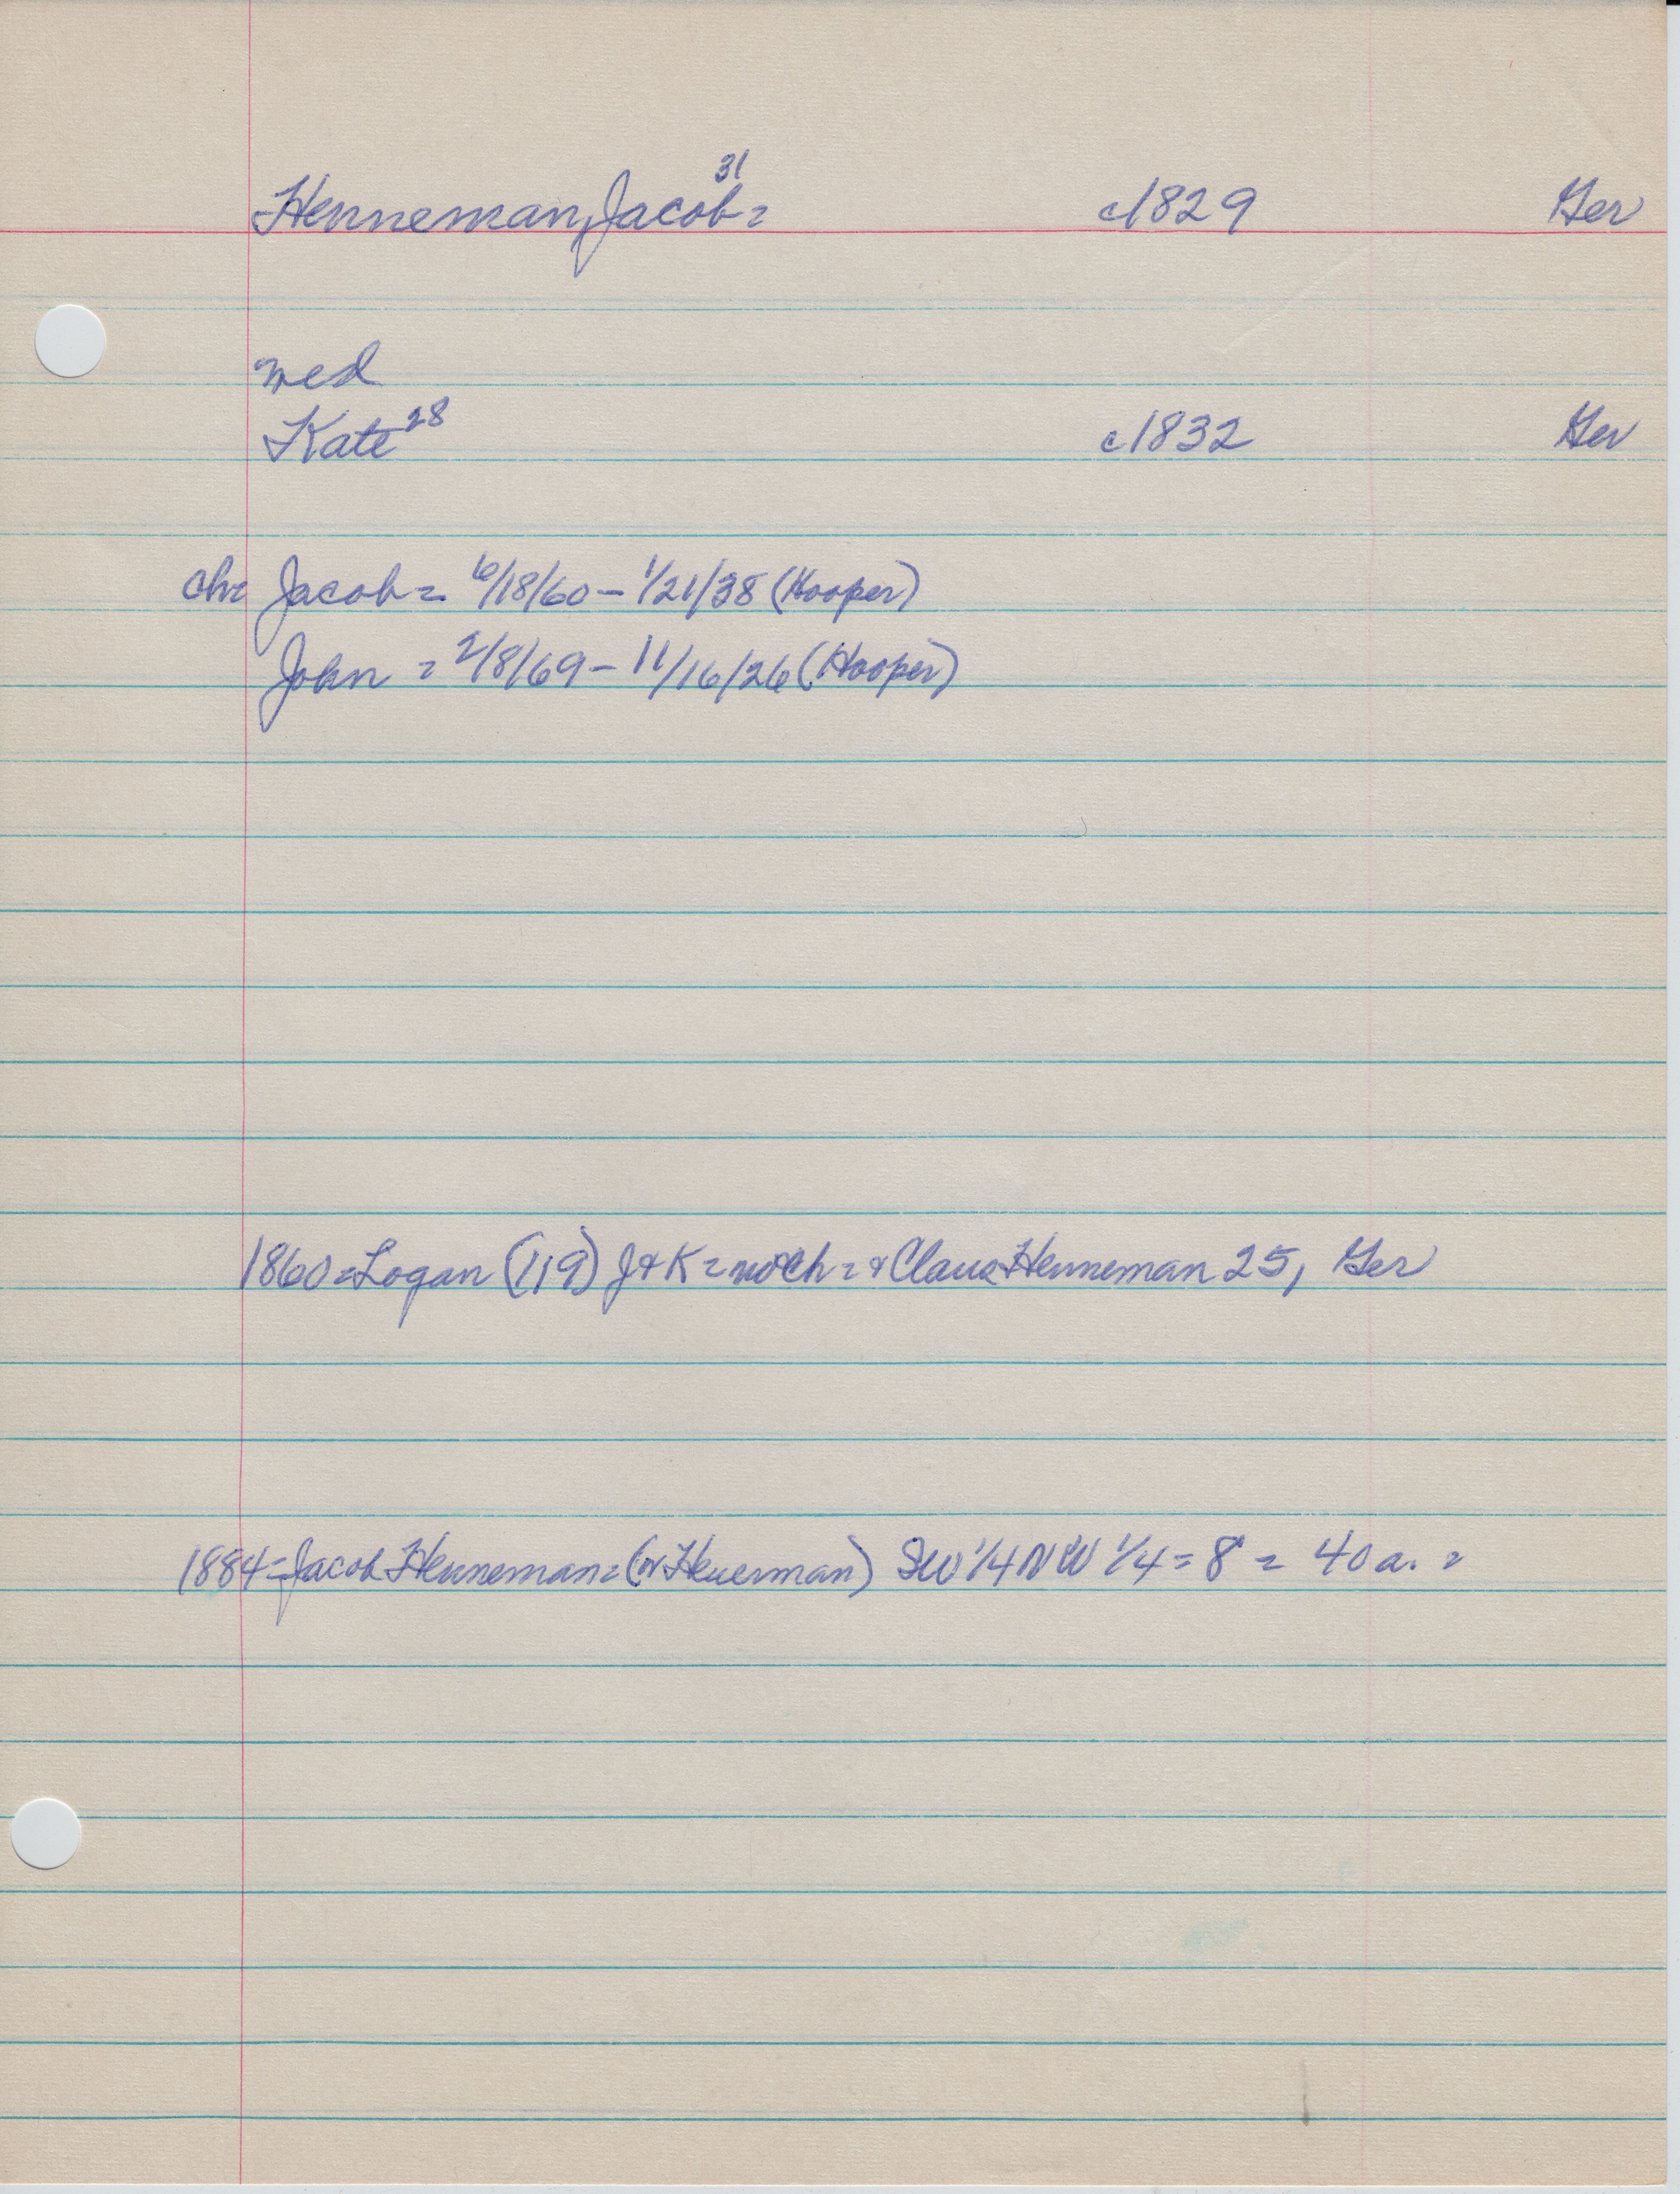 Henneman, Jacob³¹ = c1829 Ger
wed
Kate²⁸ c1832 Ger
ch= Jacob = 6/18/60 - 1/21/38 (Hooper)
John = 2/8/69 - 11/16/26 (Hooper)
1860 = Logan (119) J & K = no ch = & Claus Henneman 25, Ger
1884 = Jacob Henneman = (or Heuerman) SW 1/4 NW 1/4 = 8 = 40 a. =